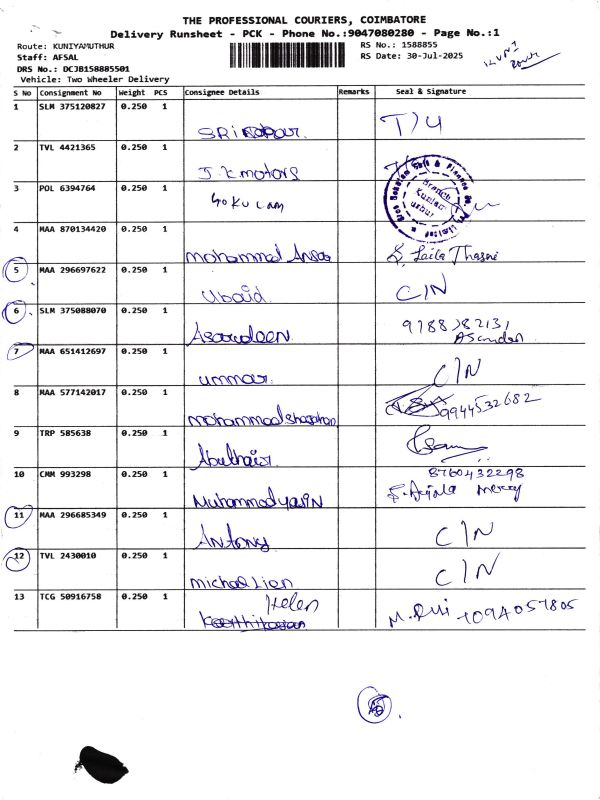 THE PROFESSIONAL COURIERS, COIMBATORE
Delivery Runsheet - PCK - Phone No.:9047080280 - Page No.:1
Route: KUNIYAMUTHUR
RS No.: 1588855
Staff: AFSAL
RS Date: 30-Jul-2025
DRS No.: DCJB158885501
Vehicle: Two Wheeler Delivery
S No Consignment No Weight PCS Consignee Details Remarks Seal & Signature
1 SLM 375120827 0.250 1
T/4
2 TVL 4421365 0.250 1
J.K motors
3 POL 6394764 0.250 1
Gokulam
Branch
4 MAA 870134420 0.250 1
mohammed Ansar S. Laila Thasni
5 MAA 296697622 0.250 1
Ubaid C/N
6 SLM 375088070 0.250 1
Asarudeen
7 MAA 651412697 0.250 1
ummar C/N
8 MAA 577142017 0.250 1
mohammed 9944532682
9 TRP 585638 0.250 1
10 CMM 993298 0.250 1
8760432298
Muhammad yasin Mercy
11 MAA 296685349 0.250 1
Antony C/N
12 TVL 2430010 0.250 1
michael lien C/N
13 TCG 50916758 0.250 1
Helen